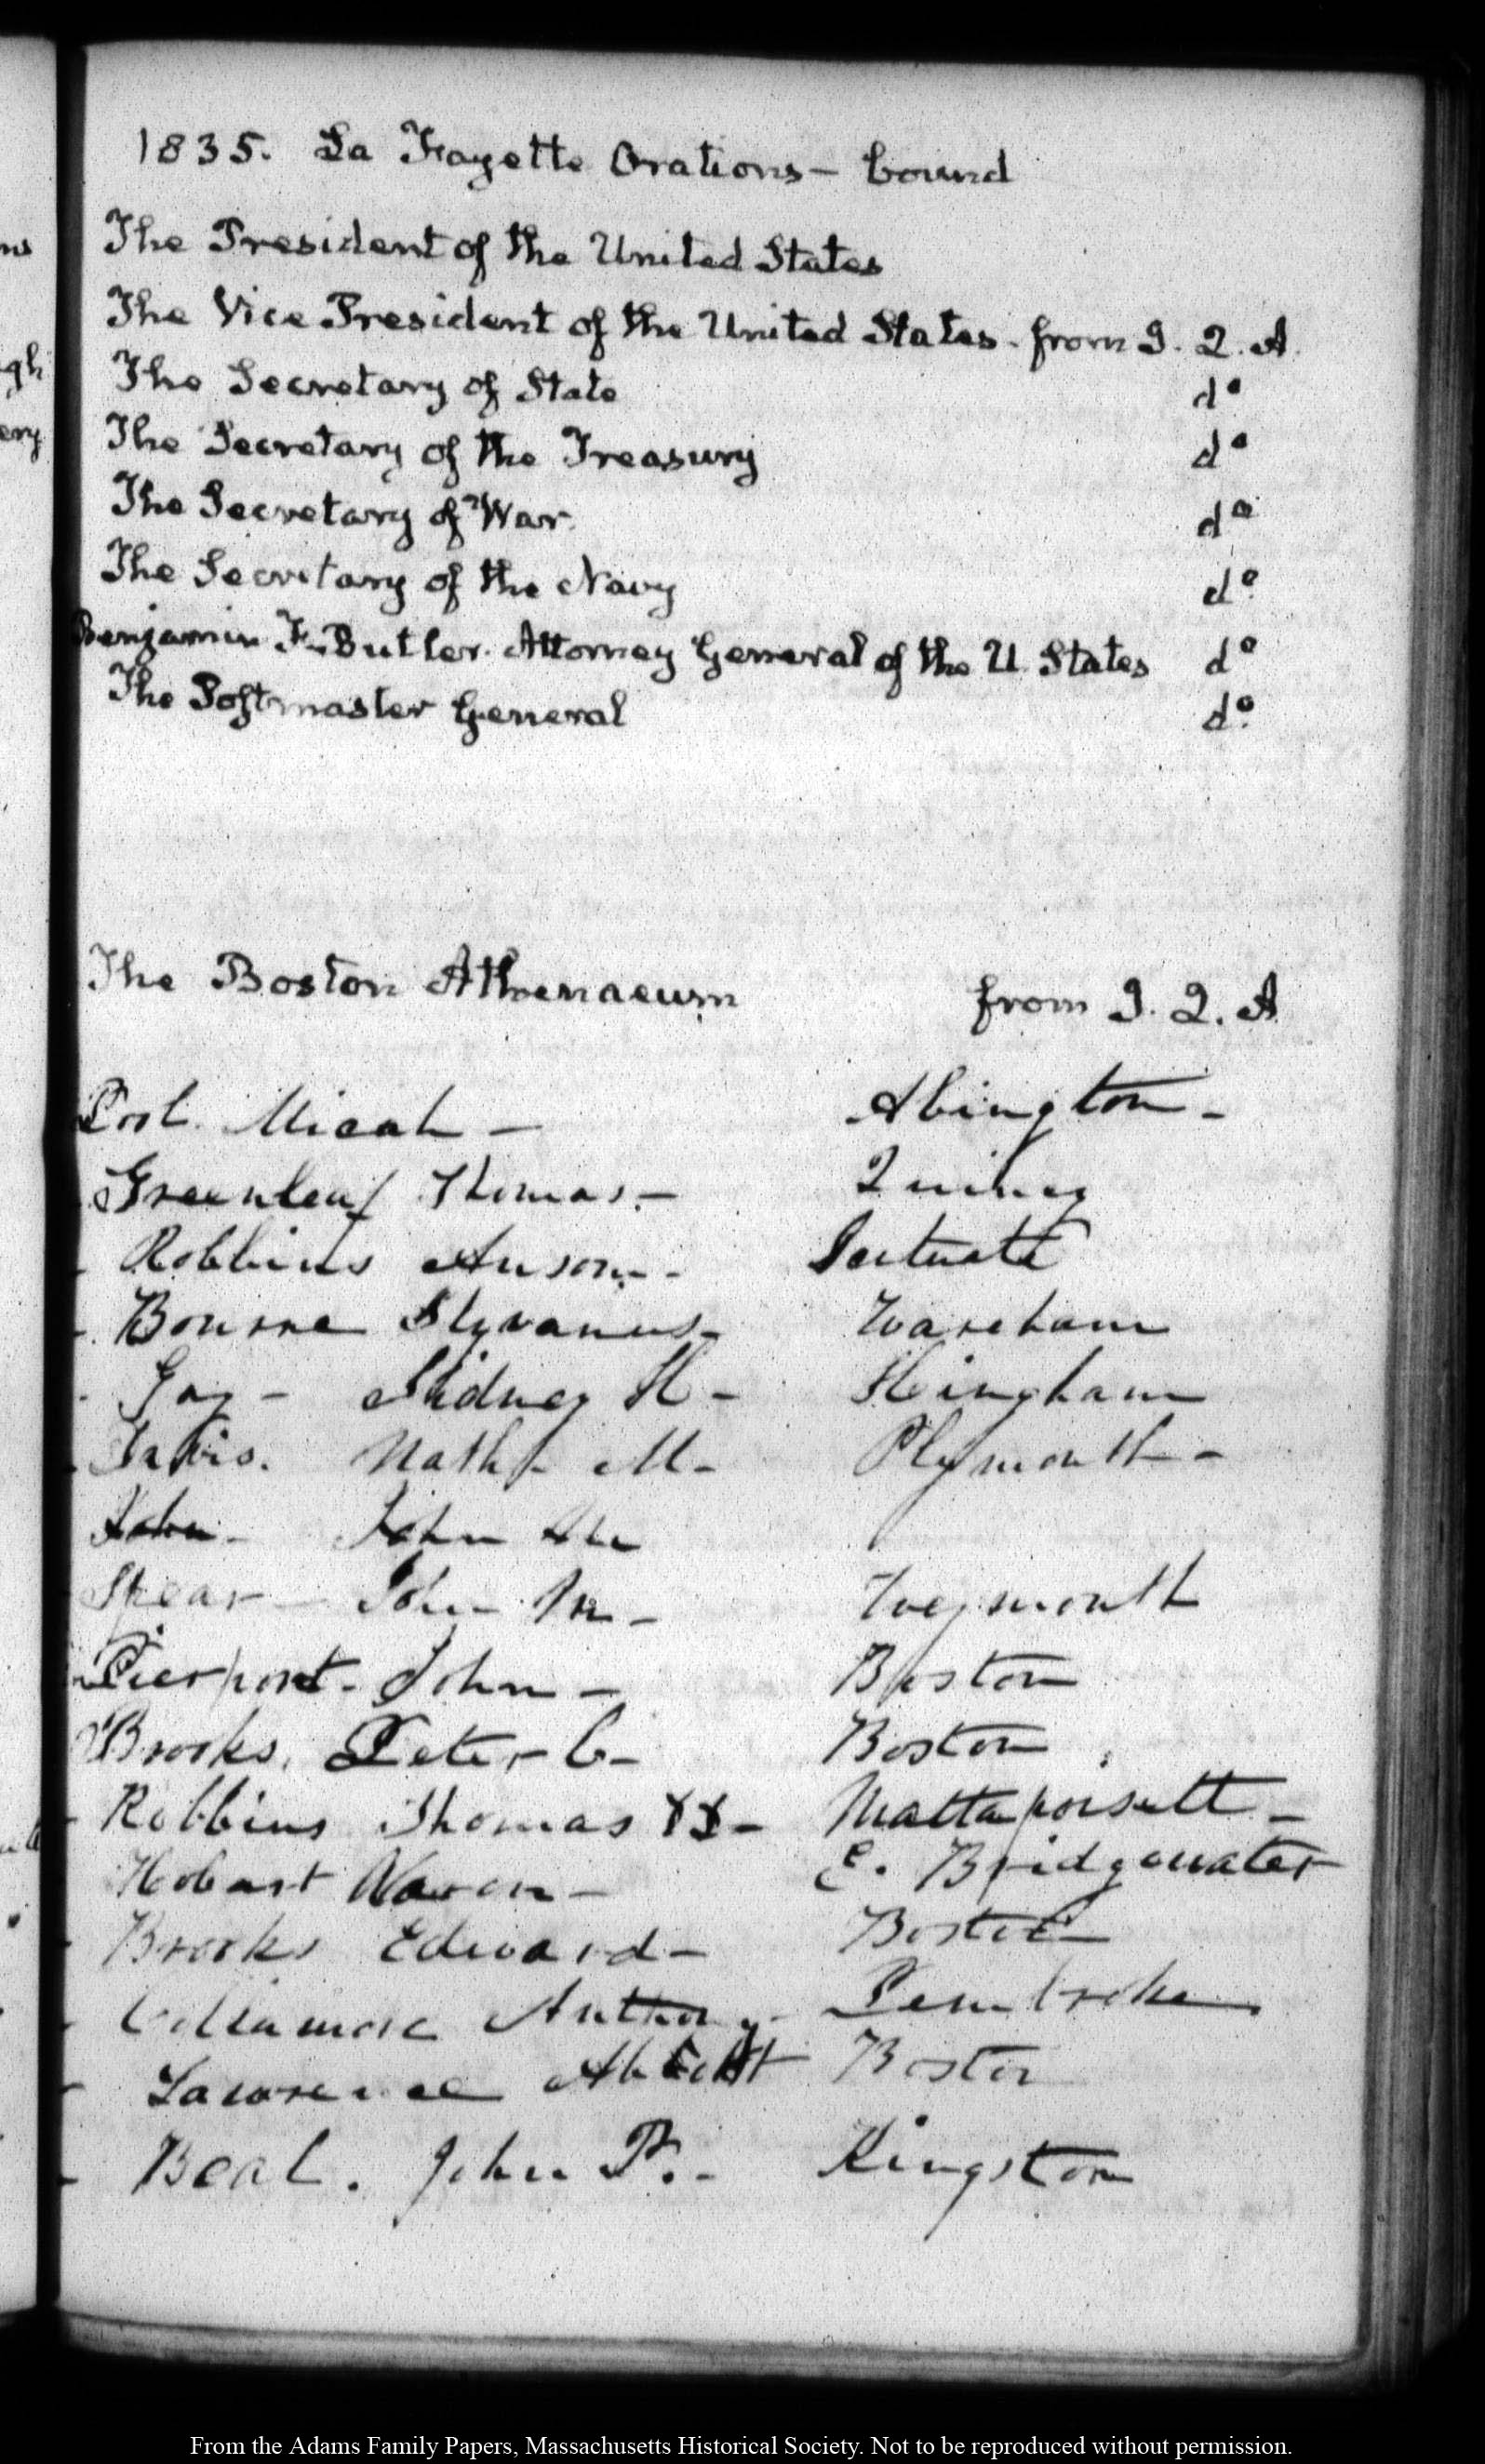 1835. La Fayette Orations – bound
The President of the United States
The Vice President of the United States. from J. Q. A.
The Secretary of State do
The Secretary of the Treasury do
The Secretary of War. do
The Secretary of the Navy do
Benjamin F. Butler. Attorney General of the U. States do
The Postmaster General do
The Boston Athenaeum from J. Q. A
Micah – Abington –
Greenleaf Thomas. – Quincy
Robbins Anson. – Scituate
Bourne Slyvanus – Wareham
Gay – Sidney H – Hingham
Davis. Nathl M – Plymouth –
John – John
Spear – John M – Weymouth
Pierpont – John – Boston
Brooks. Peter C – Boston
Robbins Thomas – Mattapoisett –
Hobart Aaron – E. Bridgewater
Brooks Edward – Boston
Collamore Anthony – Pembroke
Lawrence Abbott Boston
Beal. John P. – Kingston
From the Adams Family Papers, Massachusetts Historical Society. Not to be reproduced without permission.